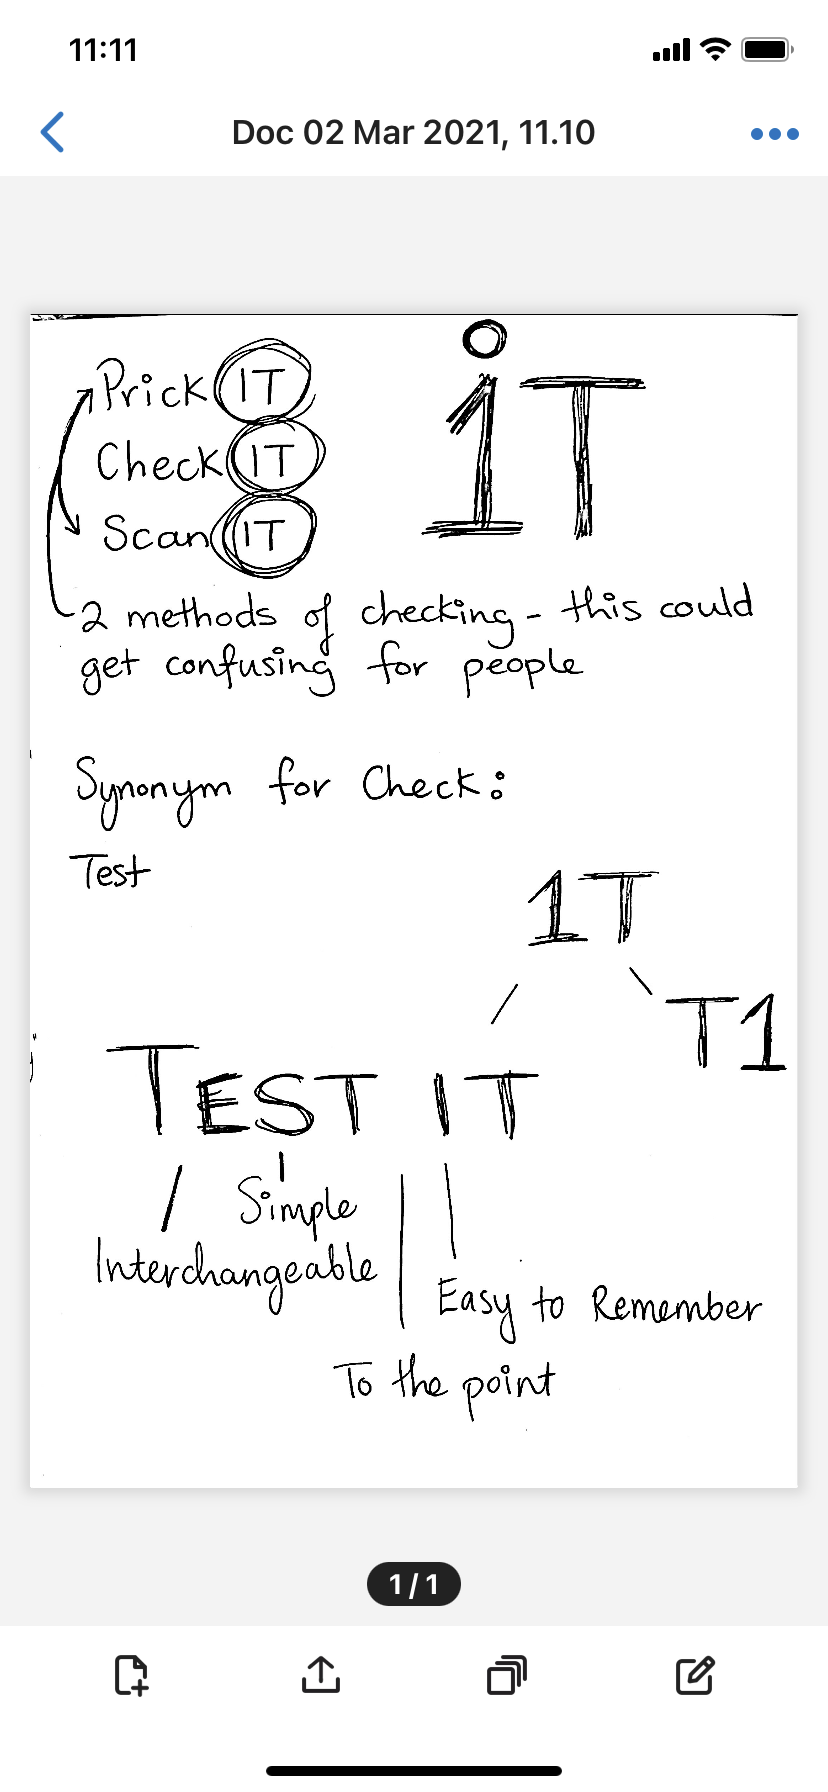 11:11
Doc 02 Mar 2021, 11.10
Prick IT
1T
Check IT
Scan IT
2 methods of checking - this could
get confusing for people
Synonym for Check:
Test
1T
T1
TEST IT
Simple
Interchangeable
Easy to Remember
To the point
1/1